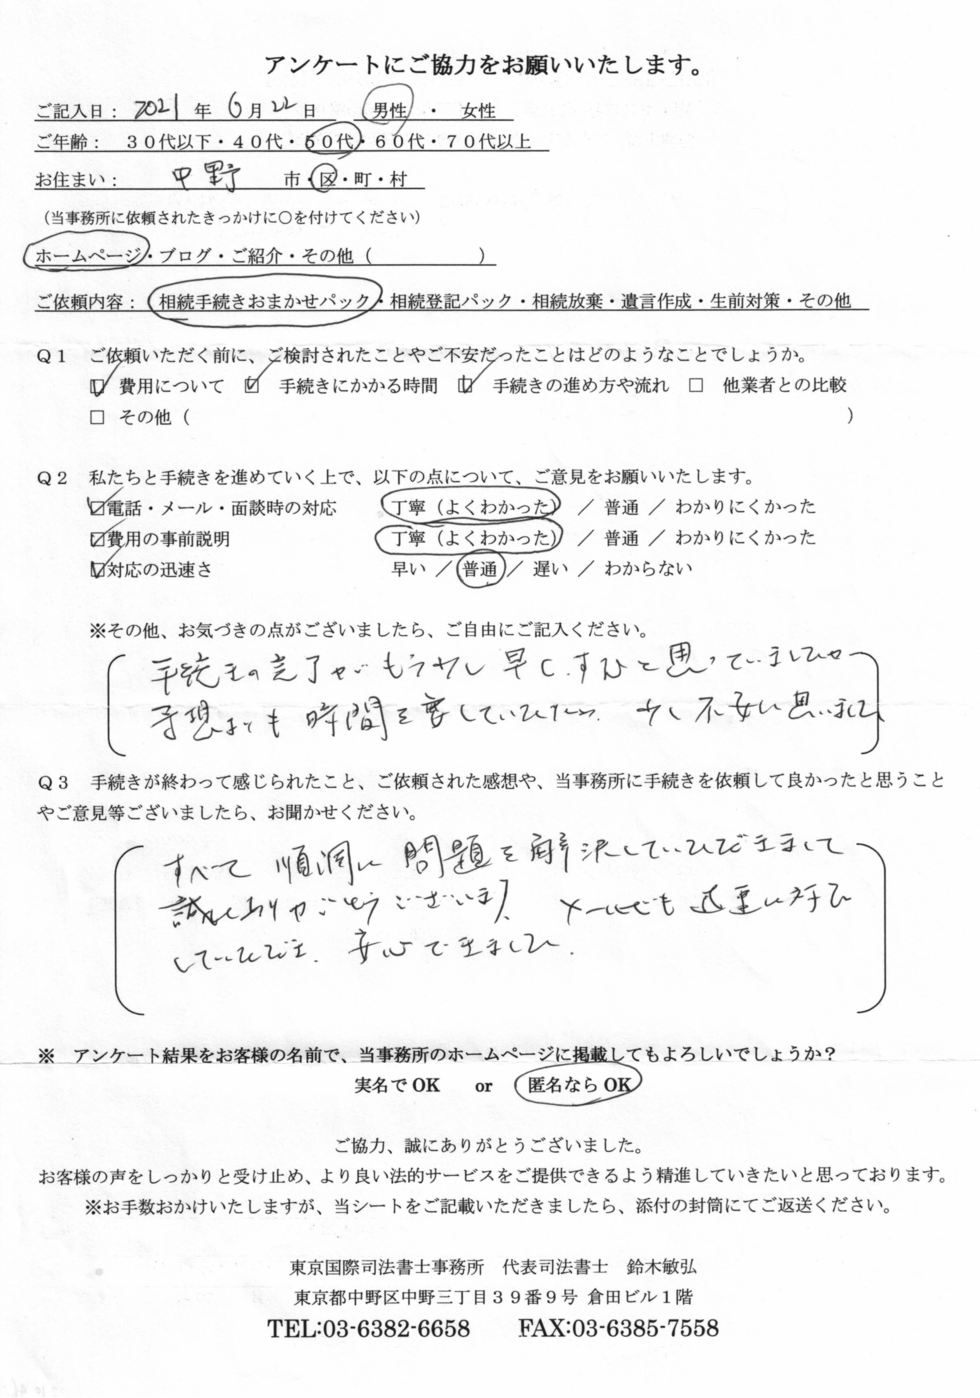 アンケートにご協力をお願いいたします。
ご記入日： 2021 年 6月 22 日 男性 ・ 女性
ご年齢： ３０代以下・４０代・５０代・６０代・７０代以上
お住まい： 中野 市・区・町・村
（当事務所に依頼されたきっかけに○を付けてください）
ホームページ・ブログ・ご紹介・その他（ ）
ご依頼内容： 相続手続きおまかせパック・相続登記パック・相続放棄・遺言作成・生前対策・その他
Ｑ１ ご依頼いただく前に、ご検討されたことやご不安だったことはどのようなことでしょうか。
☑ 費用について ☑ 手続きにかかる時間 ☑ 手続きの進め方や流れ □ 他業者との比較
□ その他（ ）
Ｑ２ 私たちと手続きを進めていく上で、以下の点について、ご意見をお願いいたします。
☑電話・メール・面談時の対応 丁寧（よくわかった） ／ 普通 ／ わかりにくかった
☑費用の事前説明 丁寧（よくわかった） ／ 普通 ／ わかりにくかった
☑対応の迅速さ 早い ／ 普通 ／ 遅い ／ わからない
※その他、お気づきの点がございましたら、ご自由にご記入ください。
手続きの完了がもう少し早くすむと思っていましたが
予想よりも時間を要していたため、少し不安に思いました
Ｑ３ 手続きが終わって感じられたこと、ご依頼された感想や、当事務所に手続きを依頼して良かったと思うこと
やご意見等ございましたら、お聞かせください。
すべて 順調に 問題を解決していただきまして
誠にありがとうございます。 メールでも迅速に対応
していただき、安心できました。
※ アンケート結果をお客様の名前で、当事務所のホームページに掲載してもよろしいでしょうか？
実名でOK or 匿名ならOK
ご協力、誠にありがとうございました。
お客様の声をしっかりと受け止め、より良い法的サービスをご提供できるよう精進していきたいと思っております。
※お手数おかけいたしますが、当シートをご記載いただきましたら、添付の封筒にてご返送ください。
東京国際司法書士事務所 代表司法書士 鈴木敏弘
東京都中野区中野三丁目３９番９号 倉田ビル１階
TEL:03-6382-6658 FAX:03-6385-7558